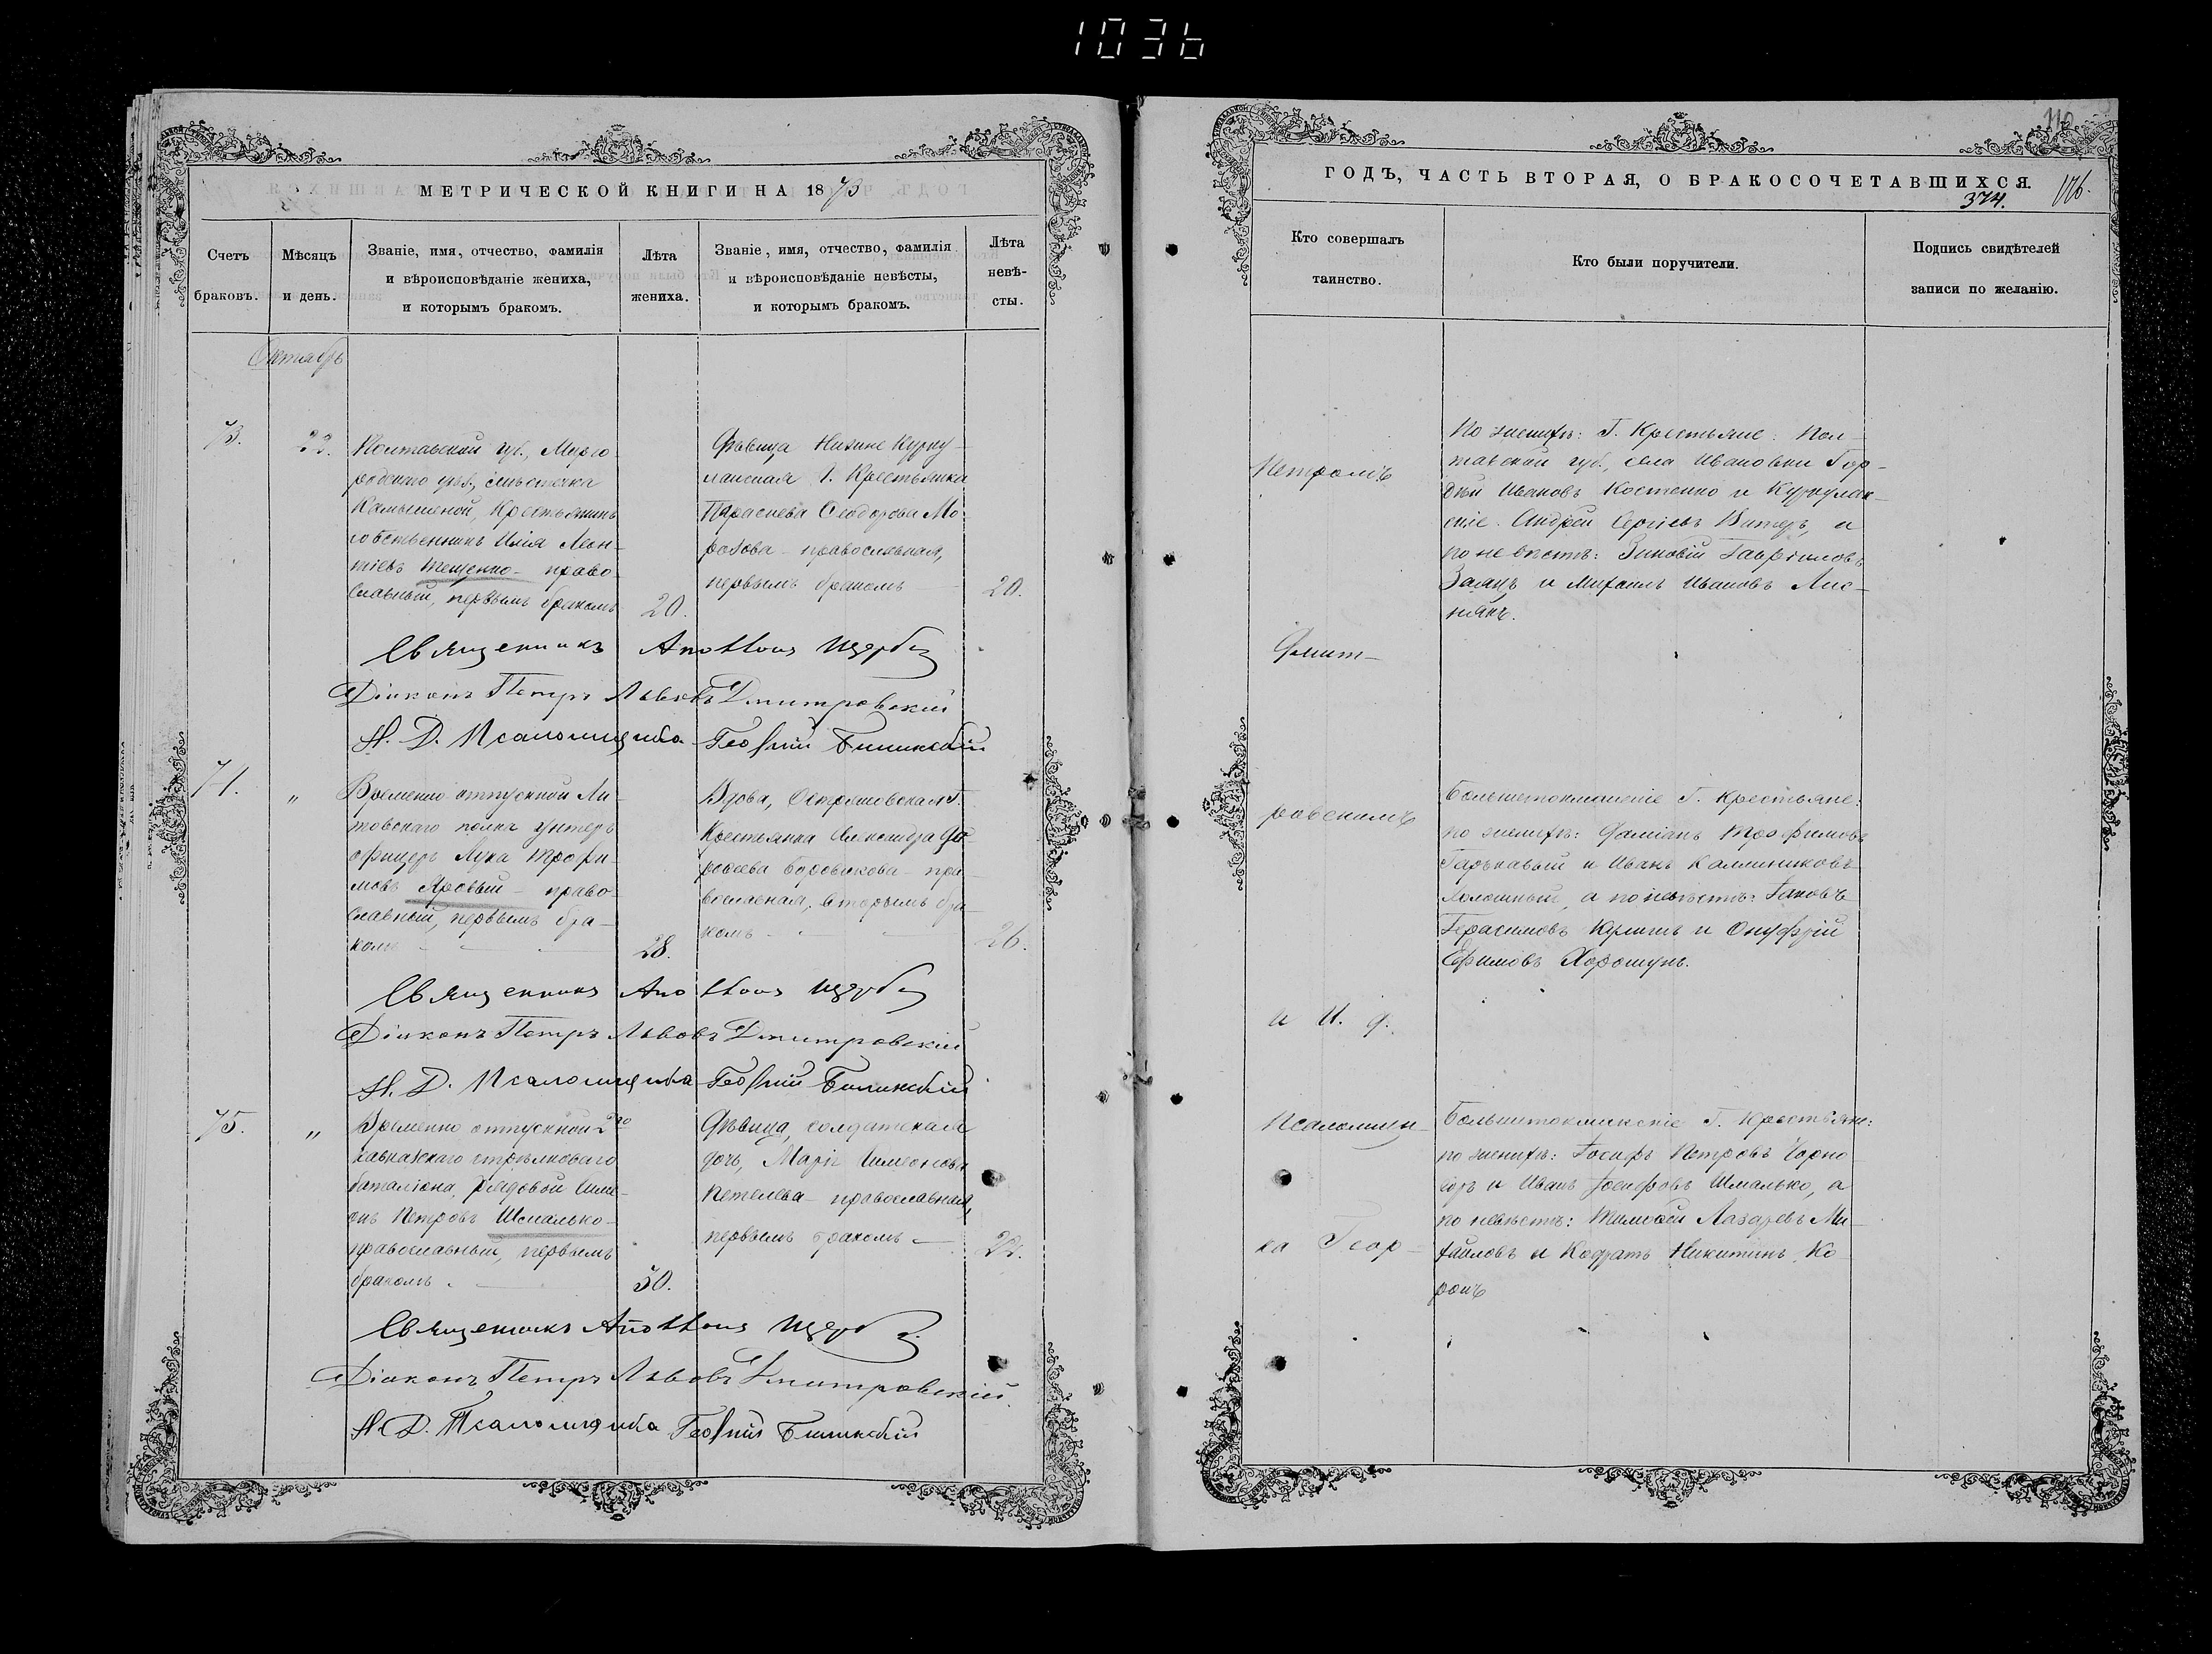 1036
МЕТРИЧЕСКОЙ КНИГИ НА 1873
Счетъ
браковъ.
Мѣсяцъ
и день.
Званіе, имя, отчество, фамилія
и вѣроисповѣданіе жениха,
и которымъ бракомъ.
Лѣта
жениха.
Званіе, имя, отчество, фамилія
и вѣроисповѣданіе невѣсты,
и которымъ бракомъ.
Лѣта
невѣ-
сты.
Октябрь
73.
Полтавской губ., Мирго-
родскаго уѣз., мѣстечка
Камышеной, Крестьянинъ
собственникъ Илія Леон-
тіевъ Тещенко - право-
славный, первымъ бракомъ
20.
Дѣвица Нижне Курку-
лакская Г. Крестьянка
Параскева Ѳеодорова Мо-
розова - православная,
первымъ бракомъ
20.
Священникъ Аполлонъ Щерба
Діаконъ Петръ Львовъ Дмитровскій
И. Д. Псаломщика Георгій
74.
"
Временно отпускной Ли-
товскаго полка унтеръ
офицеръ Лука Трофи-
мовъ Яровый - право-
славный, первымъ бра-
комъ
28.
Вдова,
Крестьянка Александра До-
рофеева - пра-
вославная, вторымъ бра-
комъ
26.
Священникъ Аполлонъ Щерба
Діаконъ Петръ Львовъ Дмитровскій
И. Д. Псаломщика Георгій
75.
"
Временно отпускной 2го
Кавказскаго стрѣлковаго
баталіона, рядовой Симе-
онъ Петровъ Шмалько -
православный, первымъ
бракомъ.
30.
Дѣвица, солдатская
дочь, Марія Симеонова
- православная,
первымъ бракомъ -
22.
Священникъ Аполлонъ Щерба.
Діаконъ Петръ Львовъ Дмитровскій.
И. Д. Псаломщика Георгій
ГОДЪ, ЧАСТЬ ВТОРАЯ, О БРАКОСОЧЕТАВШИХСЯ.
374.
Кто совершалъ
таинство.
Кто были поручители.
Подпись свидѣтелей
записи по желанію.
Петромъ
Дмит-
ровскимъ
и И. д.
Псаломщи-
ка Геор-
По женихѣ: Г. Крестьяне: Пол-
тавской губ., села Ивановки Гор-
дѣй Ивановъ Костенко и Куркулак-
скіе. Андрей Сергіевъ Витеръ, а
по невѣстѣ: Зиновій Гавріиловъ
Заяцъ и Михаилъ Ивановъ Лис-
някъ.
Большетокмакскіе Г. Крестьяне:
по женихѣ: Даміанъ Трофимовъ
Гаркавый и Иванъ Каллиниковъ
а по невѣстѣ: Іаковъ
Герасимовъ и Онуфрій
Ефимовъ Хорошунъ.
Большетокмакскіе Г. Крестьяне:
по женихѣ: Іосифъ Петровъ
и Иванъ Іосифовъ Шмалько, а
по невѣстѣ: Тимофей Лазаревъ Ми-
хайловъ и Кодратъ Никитинъ Ко-